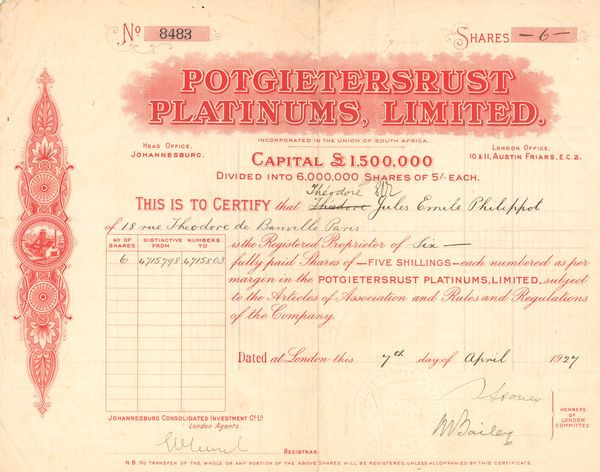 No 8483
SHARES —6—
POTGIETERSRUST
PLATINUMS, LIMITED.
INCORPORATED IN THE UNION OF SOUTH AFRICA.
HEAD OFFICE,
JOHANNESBURG.
LONDON OFFICE,
10 & 11, AUSTIN FRIARS, E.C. 2.
CAPITAL £1,500,000
DIVIDED INTO 6,000,000 SHARES OF 5/- EACH.
Theodore
THIS IS TO CERTIFY that Theodore Jules Emile Philippot
of 18 rue Theodore de Banville Paris
No OF SHARES DISTINCTIVE NUMBERS FROM TO
6 4715798 4715803
is the Registered Proprietor of Six —
fully paid Shares of —FIVE SHILLINGS— each numbered as per
margin in the POTGIETERSRUST PLATINUMS, LIMITED, subject
to the Articles of Association and Rules and Regulations
of the Company.
Dated at London this 7th day of April 1927
JOHANNESBURG CONSOLIDATED INVESTMENT Co. Ld.
London Agents.
MEMBERS
OF
LONDON
COMMITTEE
REGISTRAR.
N.B. NO TRANSFER OF THE WHOLE OR ANY PORTION OF THE ABOVE SHARES WILL BE REGISTERED, UNLESS ACCOMPANIED BY THIS CERTIFICATE.